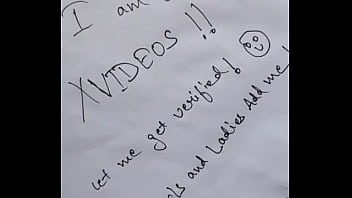 I am
XVIDEOS !!
Let me get verified!
and Ladies Add me!